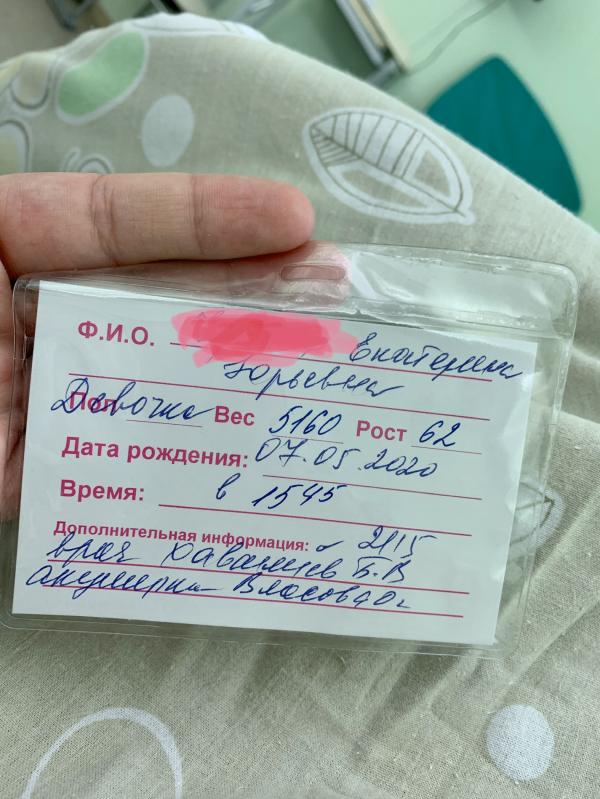 Ф.И.О. Екатерина
Юрьевна
Пол Девочка Вес 5160 Рост 62
Дата рождения: 07.05.2020
Время: в 1545
Дополнительная информация: 2115
врач Б.В
акушерка